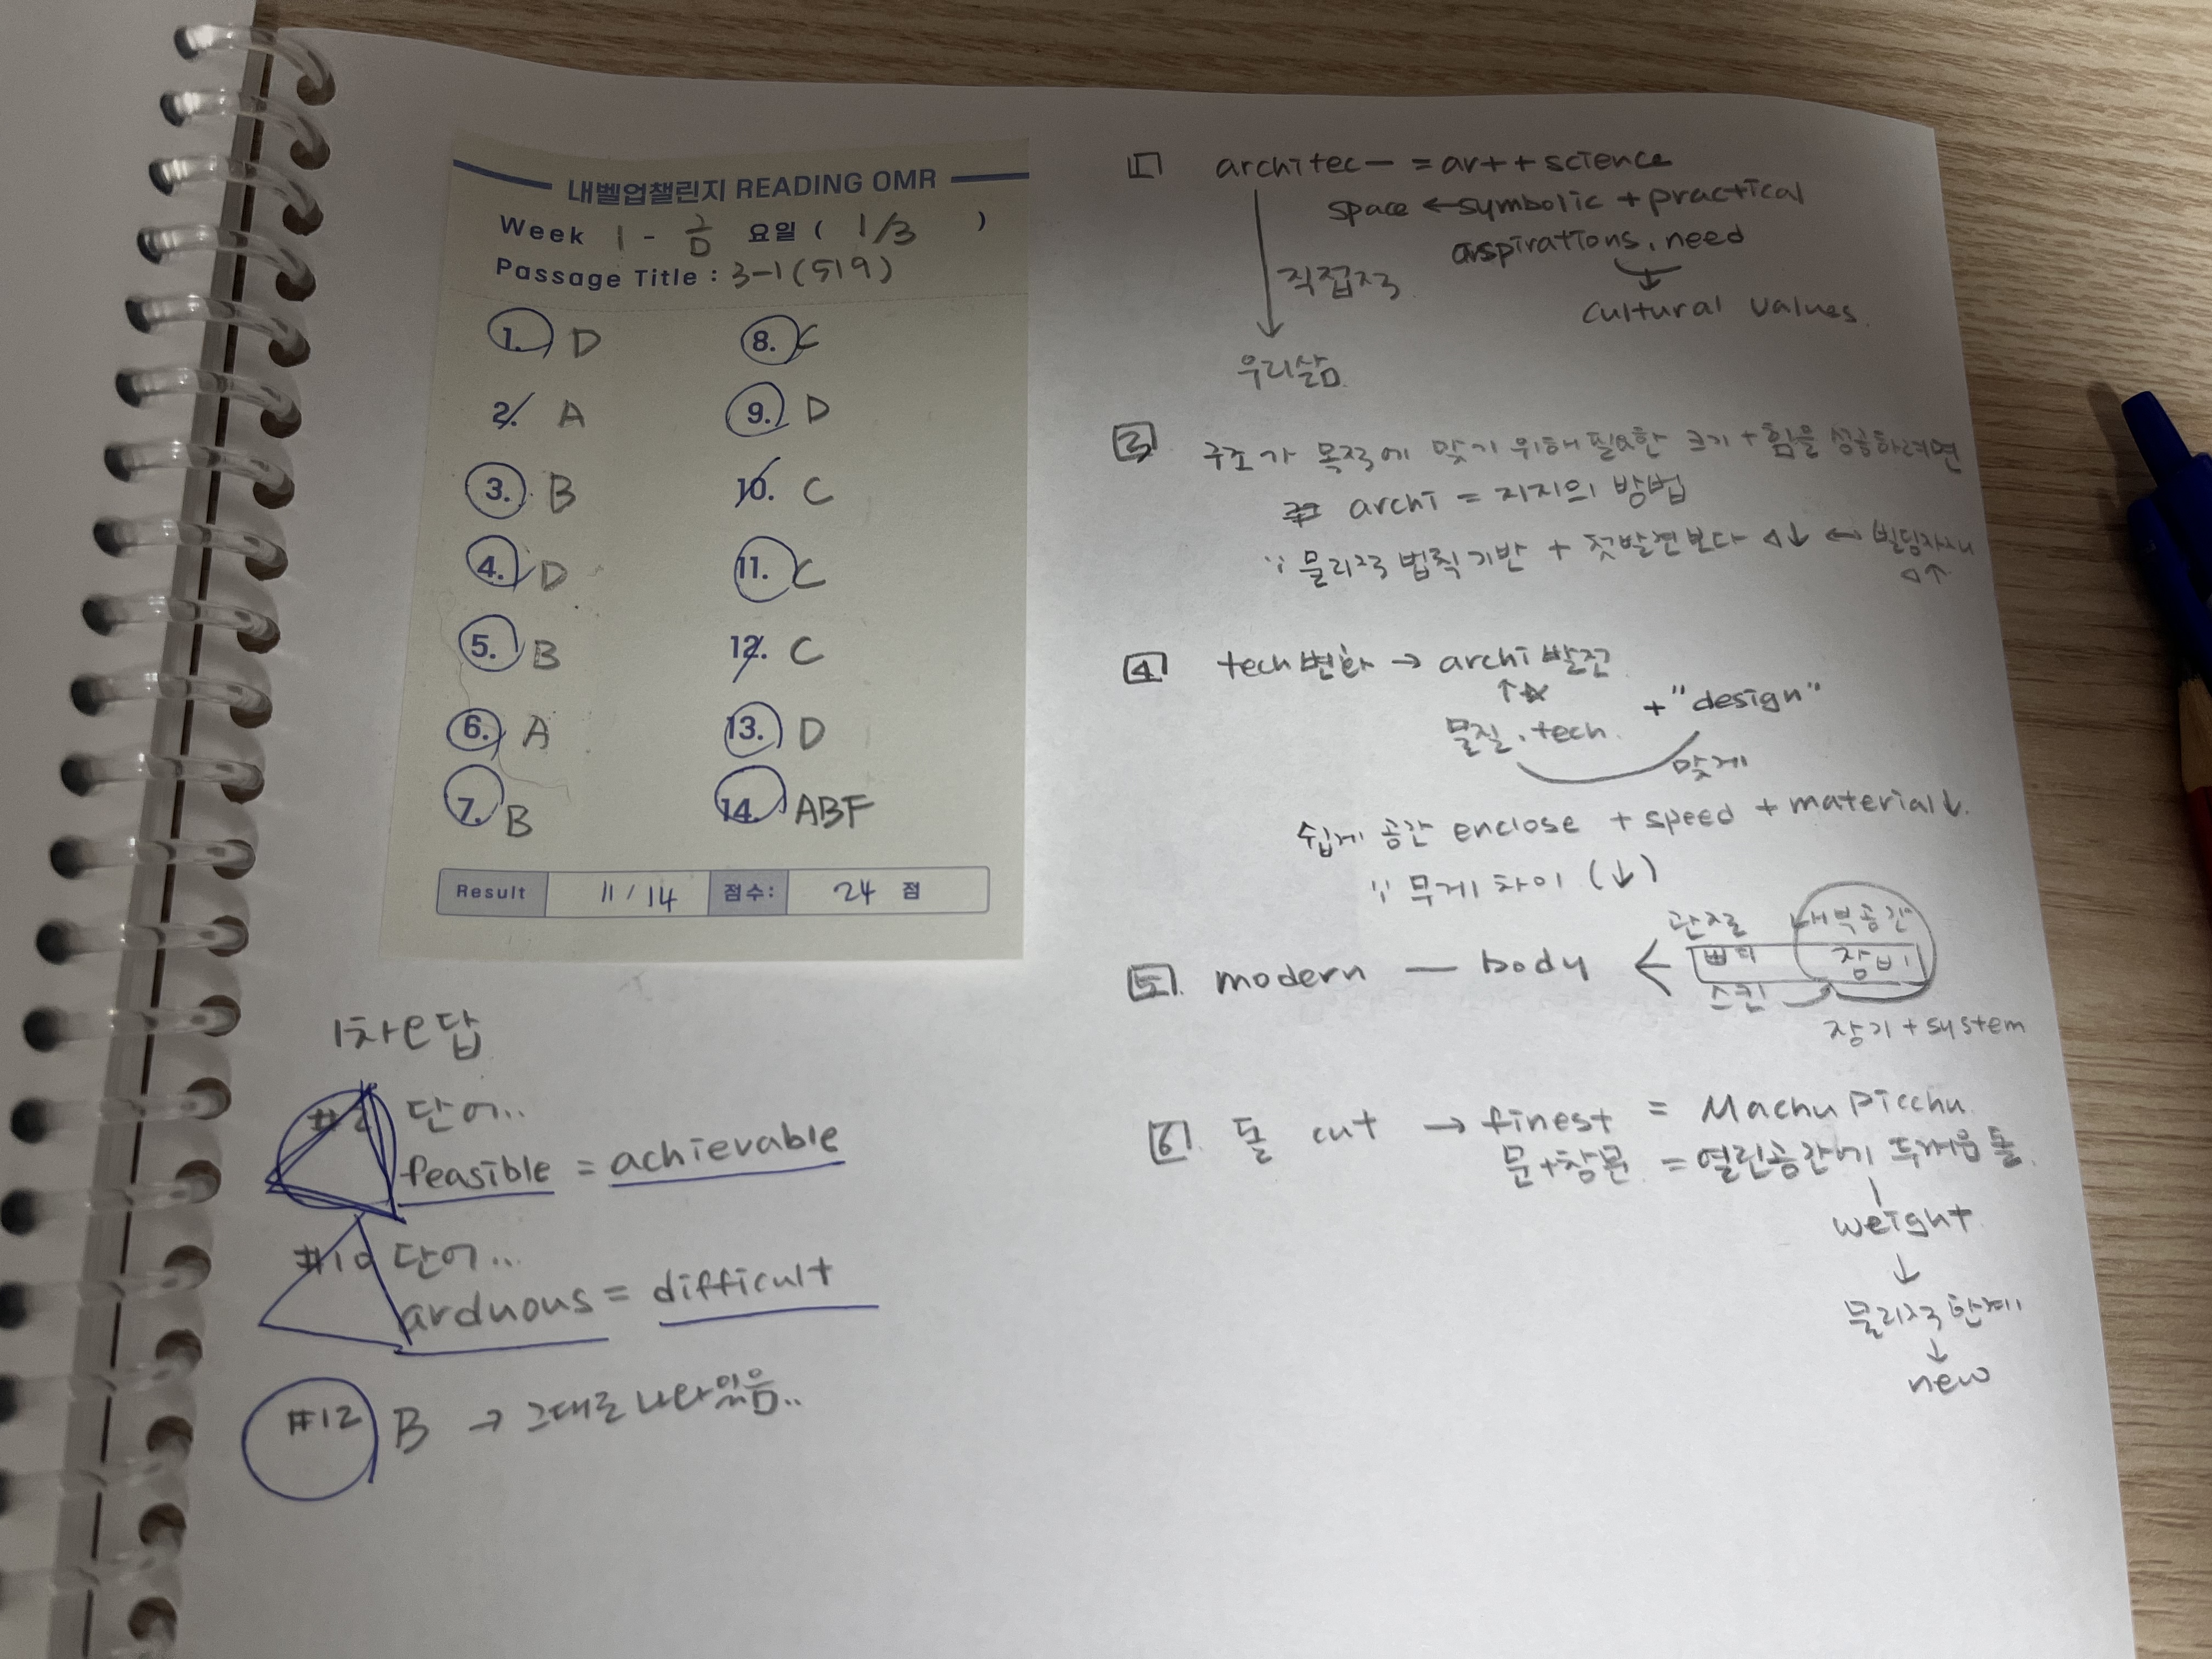 내벨업챌린지 READING OMR
Week 1 - 금 요일 ( 1/3 )
Passage Title : 3-1 (519)
1. D
2. A
3. B
4. D
5. B
6. A
7. B
8. C
9. D
10. C
11. C
12. C
13. D
14. ABF
Result 11 / 14 점수: 24 점
1차 오답
#2 단어...
feasible = achievable
#10 단어...
arduous = difficult
#12 B → 그대로 나와있음..
1 architec— = art + science
space ← symbolic + practical
aspirations, need
↓
cultural values.
직접적
우리삶
3 구조가 목적에 맞기 위해 필요한 크기 + 힘을 성공하려면
archi = 지지의 방법
∵ 물리적 법칙 기반 + 첫발견보다 △↓ ↔ 빌딩자재
△↑
4 tech 변화 → archi 발전
↑☆
물질, tech. + "design"
맞게
쉽게 공간 enclose + speed + material↓.
∵ 무게 차이 (↓)
5 modern — body <
관점 내부공간
뼈대 장비
스킨
장기 + system
6 돌 cut → finest = Machu Picchu.
문+창문 = 열린공간에 두꺼운 돌.
weight
↓
물리적 한계
↓
new